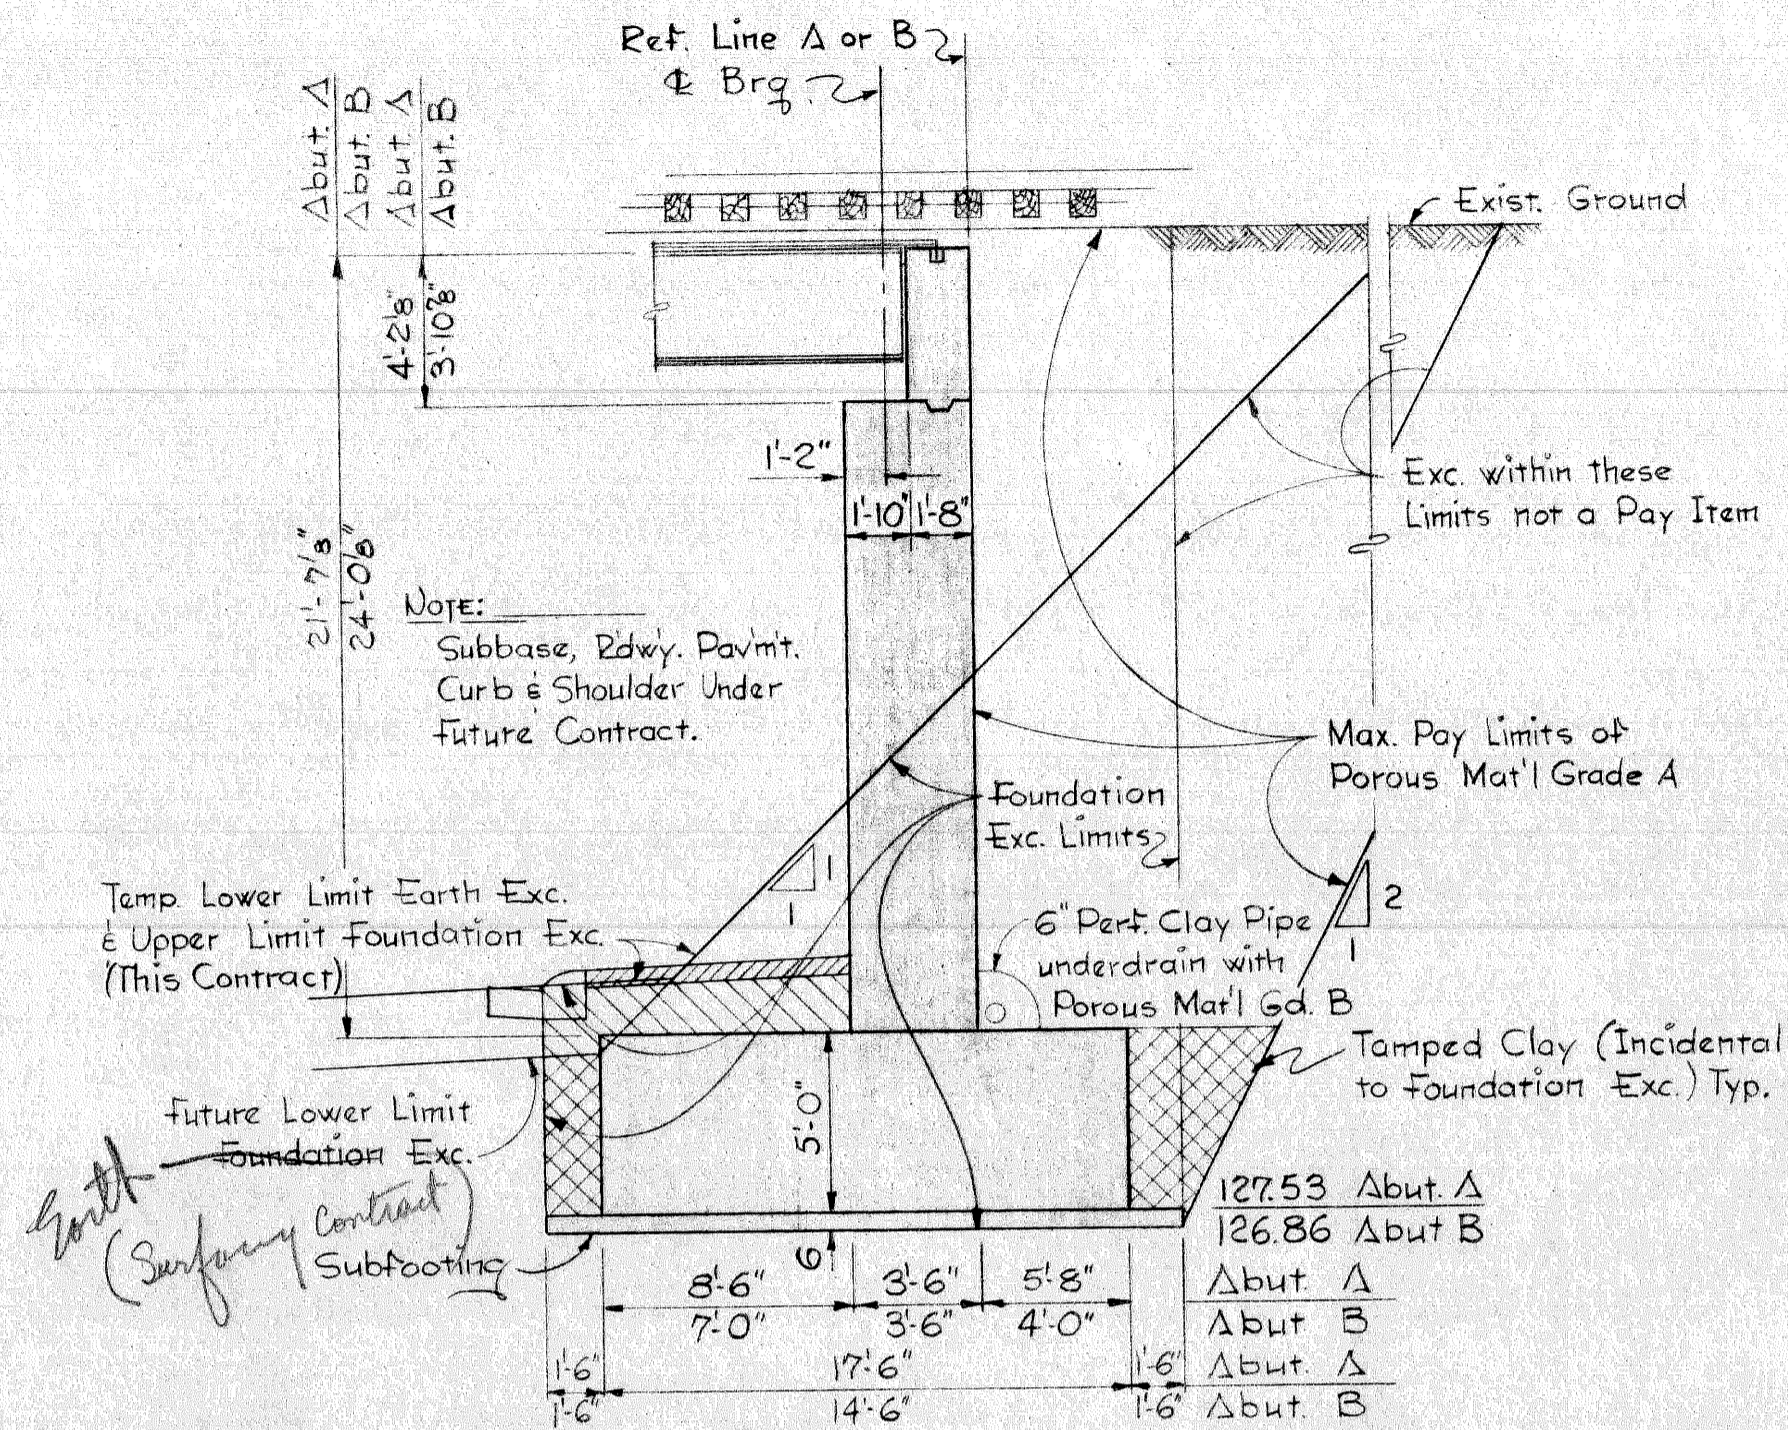 Ref. Line A or B
℄ Brg.
Abut. A
Abut. B
Abut. A
Abut. B
Exist. Ground
4'-2⅛"
3'-10⅞"
1'-2"
1'-10" 1'-8"
Exc. within these
Limits not a Pay Item
21'-7⅛"
24'-0⅛"
NOTE:
Subbase, Rdwy. Pav'm't.
Curb & Shoulder Under
Future Contract.
Max. Pay Limits of
Porous Mat'l Grade A
Foundation
Exc. Limits
1
1
2
1
Temp. Lower Limit Earth Exc.
& Upper Limit Foundation Exc.
(This Contract)
6" Perf. Clay Pipe
underdrain with
Porous Mat'l Gd. B
Tamped Clay (Incidental
to Foundation Exc.) Typ.
5'-0"
Future Lower Limit
Foundation Exc.
Contract)
Subfooting
6"
127.53 Abut. A
126.86 Abut B
8'-6" 3'-6" 5'-8" Abut. A
7'-0" 3'-6" 4'-0" Abut B
1'-6" 17'-6" 1'-6" Abut. A
1'-6" 14'-6" 1'-6" Abut. B